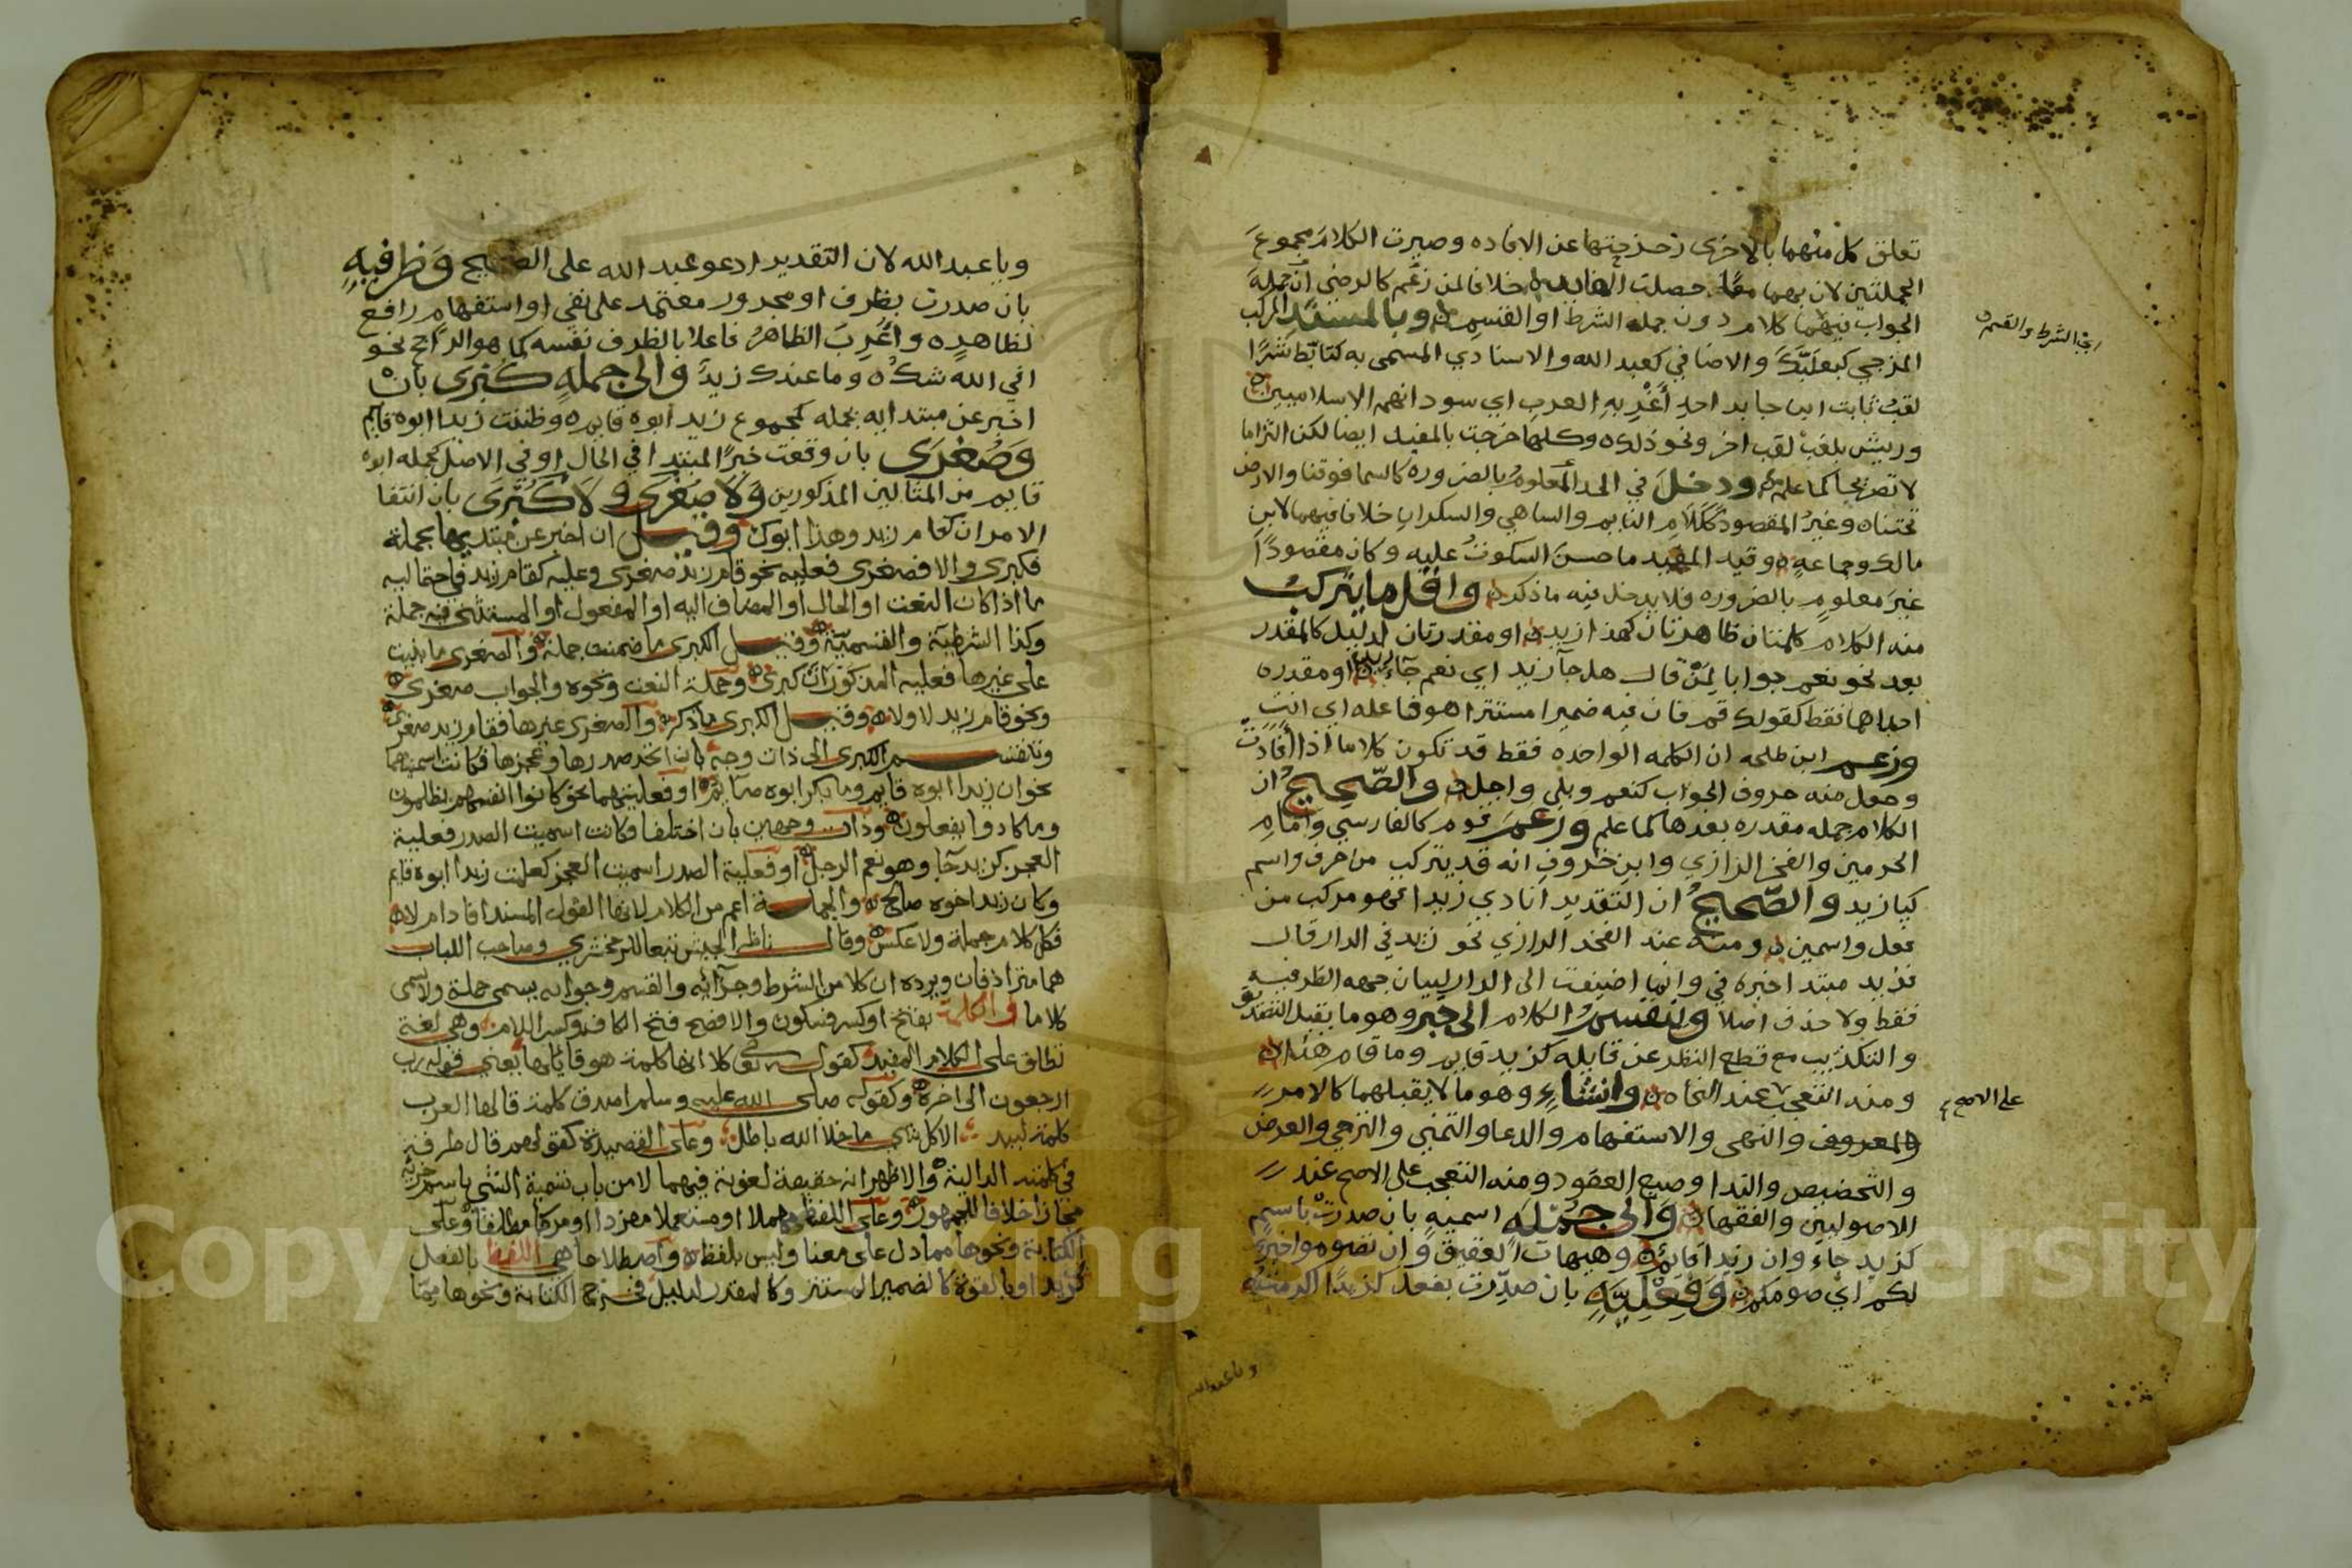 تعلق كل منهما بالاخرى زحزحتها عن الافاده وصيرت الكلام مجموع
الجملتين لان بهما معا حصلت الفايده خلافا لمن زعم كالرضي ان جملة
الجواب فيهما كلام دون جمله الشرط او القسم وبالمسند المركب
اي الشرط والقسم
المزجي كبعلبك والاضافي كعبد الله والاسنادي المسمى به كتابّط شرّا
لقب ثابت ابن جابر احد أغربه العرب اي سودانهم الاسلاميين
وريش بلغب لقب اخر ونحو ذلك وكلها خرجت بالمفيد ايضا لكن التزاما
لا تصريحا كما علم ودخل في الحد المعلوم بالضروره كالسما فوقنا والارض
تحتنا وغير المقصود ككلام النايم والساهي والسكران خلافا فيهما لابن
مالك وجماعه وقيد المفيد ما حسن السكوت عليه وكان مقصودًا
غير معلوم بالضروره فلا يدخل فيه ما ذكر واقل ما يتركب
منه الكلام كلمتان ظاهرتان كهذا زيد او مقدرتان لدليل كالمقدر
بعد نحو نعم جوابا لمن قال هل جآ زيد اي نعم جآء زيد او مقدره
احداهما فقط كقولك قم فان فيه ضميرا مستترا هو فاعله اي انت
وزعم ابن طلحه ان الكلمه الواحده فقط قد تكون كلاما اذا أفادت
وجعل منه حروف الجواب كنعم وبلى واجل والصّحيح ان
الكلام جمله مقدره بعدها كما علم وزعم قوم كالفارسي وامام
الحرمين والفخر الرازي وابن خروف انه قد يتركب من حرف واسم
كيا زيد والصّحيح ان التقدير انادي زيدا فهو مركب من
فعل واسمين ومنه عند الفخر الرازي نحو زيد في الدار قال
فزيد مبتدا خبره في وانما اضيفت الى الدار لبيان جهه الظرفيه
فقط ولا حذف اصلا وينقسم الكلام الى خبر وهو ما يقبل التصديق
والتكذيب مع قطع النظر عن قايله كزيد قايم وما قام هذا
ومنه التعجب عند النحاه وانشاء وهو ما لا يقبلهما كالامر
على الاصح
بالمعروف والنهى والاستفهام والدعا والتمني والترجي والعرض
والتحضيض والندا وصيغ العقود ومنه التعجب على الاصح عند
الاصوليين والفقها والى جمله اسميه بان صدرت باسم
كزيد جاء وان زيدا قايم وهيهات العقيق وان تصوموا خير
لكم اي صومكم وفعليّه بان صدّرت بفعل
وياعبدالله
وياعبدالله لان التقدير ادعو عبد الله على الصحيح وظرفيه
بان صدرت بظرف او مجرور معتمد على نفي او استفهام رافع
لظاهره واعرب الظاهر فاعلا بالظرف نفسه كما هو الراجح نحو
افي الله شك وما عندك زيد والى جمله كبرى بان
اخبر عن مبتدا بجمله كمجموع زيد ابوه قايم وظننت زيدا ابوه قايم
وصغرى بان وقعت خبرًا لمبتدا في الحال او في الاصل كجمله ابوه
قايم من المثالين المذكورين ولا صغرى ولا كبرى بان انتفا
الامران كقام زيد وهذا ابوك وقيل ان اخبر عن مبتديها بجملة
فكبرى والا فصغرى فعليه نحو قام زيد صغرى وعليه كقام زيد
ما اذا كان النعت او الحال او المضاف اليه او المفعول او المستثنى فيه جملة
وكذا الشرطية والقسميّة وقيل الكبرى ما ضمنت جملة والصغرى ما بنيت
على غيرها فعليه المذكوران كبرى وجملة النعت ونحوه والجواب صغرى
ونحو قام زيد لا ولا وقيل الكبرى ما ذكر والصغرى غيرها فقام زيد صغرى
وتنقسم الكبرى الى ذات وجه بان اتحد صدرها وعجزها فكانت اسميتهما
نحو ان زيدا ابوه قايم وما بكر ابوه صآيم او فعليتهما نحو كانوا انفسهم يظلمون
وما كادوا يفعلون وذات وجهين بان اختلفا فكانت اسمية الصدر فعلية
العجز كزيد جا وهو نعم الرجل او فعلية الصدر اسمية العجز كعلمت زيدا ابوه قايم
وكان زيدا اخوه صالح والجملة اعم من الكلام لانها القول المسند افاد ام لا
فكل كلام جملة ولا عكس وقال ناظر الجيش تبعا للزمخشري وصاحب اللباب
هما مترادفان ويرده ان كلا من الشرط وجزائه والقسم وجوابه يسمى جملة ولا يسمى
كلاما والكلمة بفتح او كسر فسكون والافصح فتح الكاف وكسر اللام وهي لغة
تطلق على الكلام المفيد كقوله تعالى كلا انها كلمة هو قايلها يعني قوله رب
ارجعون الى اخره وكقوله صلى الله عليه وسلم اصدق كلمة قالها العرب
كلمة لبيد الا كل شي ما خلا الله باطل وعلى القصيدة كقولهم قال طرفة
في كلمته الدالية والاظهر انه حقيقة لغوية فيهما لا من باب تسمية الشي باسم جزئه
مجازا خلافا للجمهور وعلى اللفظ مهملا او مستعملا مفردا او مركبا مطلقا وعلى
الكتابة ونحوها مما دل على معنا وليس بلفظ واصطلاحا هي اللفظ بالفعل
كزيد او بالقوة كالضمير المستتر وكالمقدر لدليل فخرج الكتابة ونحوها ممّا
Copy King Saud University